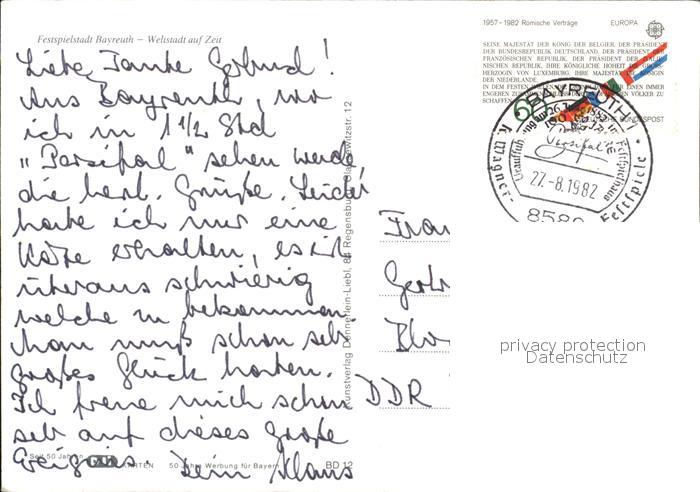 Festspielstadt Bayreuth – Weltstadt auf Zeit
Liebe Tante Gertrud!
Aus Bayreuth, wo
ich in 1 1/2 Std
"Parsifal" sehen werde
die herzl. Grüße. Leider
habe ich nur eine
Karte erhalten, es ist
überaus schwierig
welche zu bekommen.
Man muß schon sehr
großes Glück haben.
Ich freue mich schon
sehr auf dieses große
Ereignis. Dein Klaus
Seit 50 Jahren
KARTEN 50 Jahre Werbung für Bayern
BD 12
Kunstverlag Dannerlein-Liebl, 84 Regensburg, Clausewitzstr. 12
Frau
Gertr
DDR
1957–1982 Römische Verträge EUROPA
SEINE MAJESTÄT DER KÖNIG DER BELGIER, DER PRÄSIDENT
DER BUNDESREPUBLIK DEUTSCHLAND, DER PRÄSIDENT DER
FRANZÖSISCHEN REPUBLIK, DER PRÄSIDENT DER ITALIE-
NISCHEN REPUBLIK, IHRE KÖNIGLICHE HOHEIT DIE GROSS-
HERZOGIN VON LUXEMBURG, IHRE MAJESTÄT DIE KÖNIGIN
DER NIEDERLANDE
60
DEUTSCHE BUNDESPOST
BAYREUTH 1
100 Jahre
Parsifal
Uraufführung am 26.7.1882 im Festspielhaus
27.-8.1982
R. Wagner-Festspiele
8580
privacy protection
Datenschutz